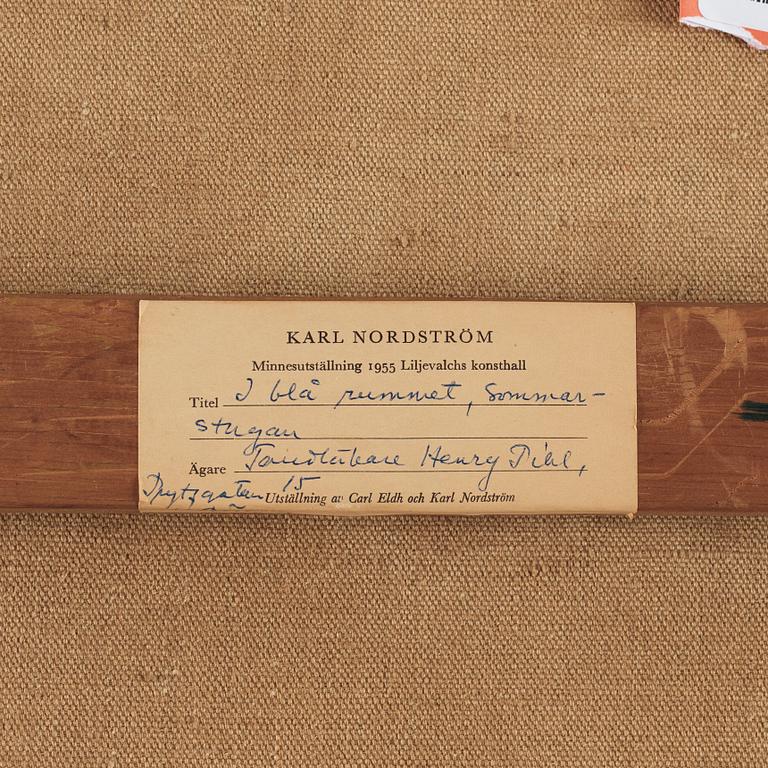 KARL NORDSTRÖM
Minnesutställning 1955 Liljevalchs konsthall
Titel I blå rummet, Sommar-
stugan
Ägare Tandläkare Henry Pihl,
15
Utställning av Carl Eldh och Karl Nordström